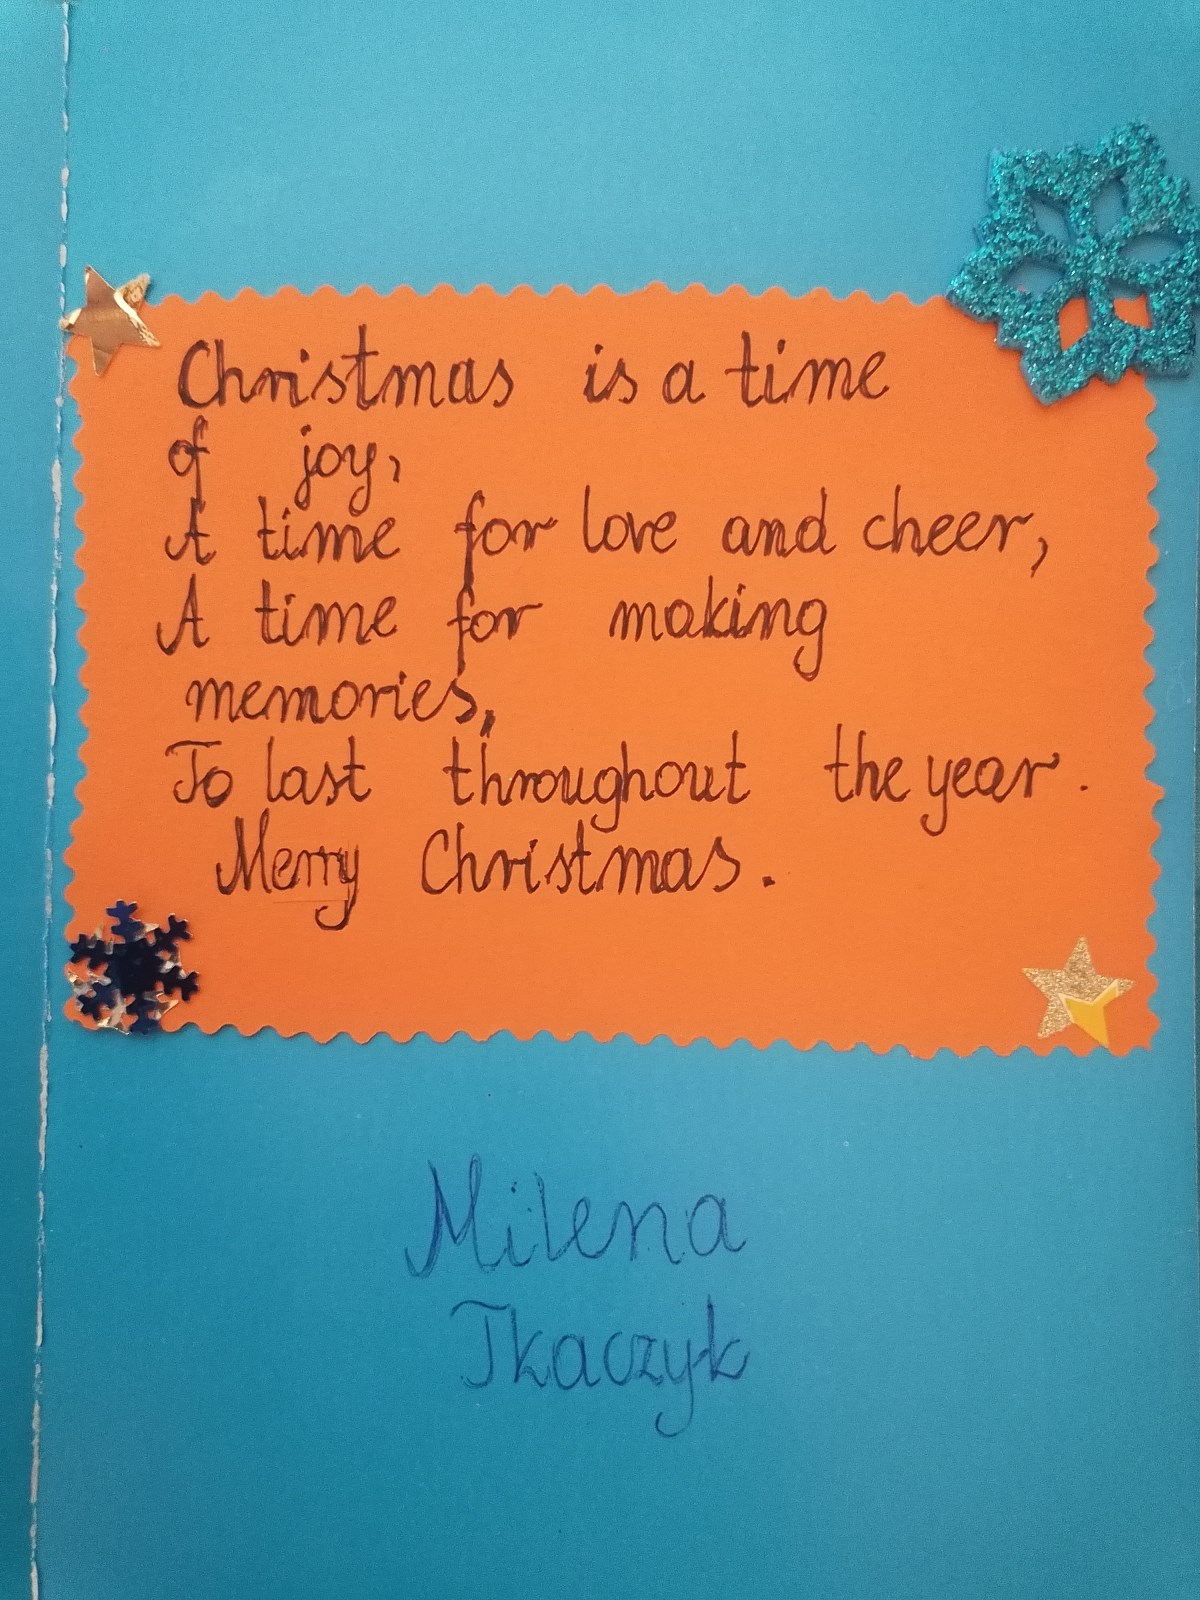 Christmas is a time
of joy,
A time for love and cheer,
A time for making
memories,
To last throughout the year.
Merry Christmas.
Milena
Tkaczyk